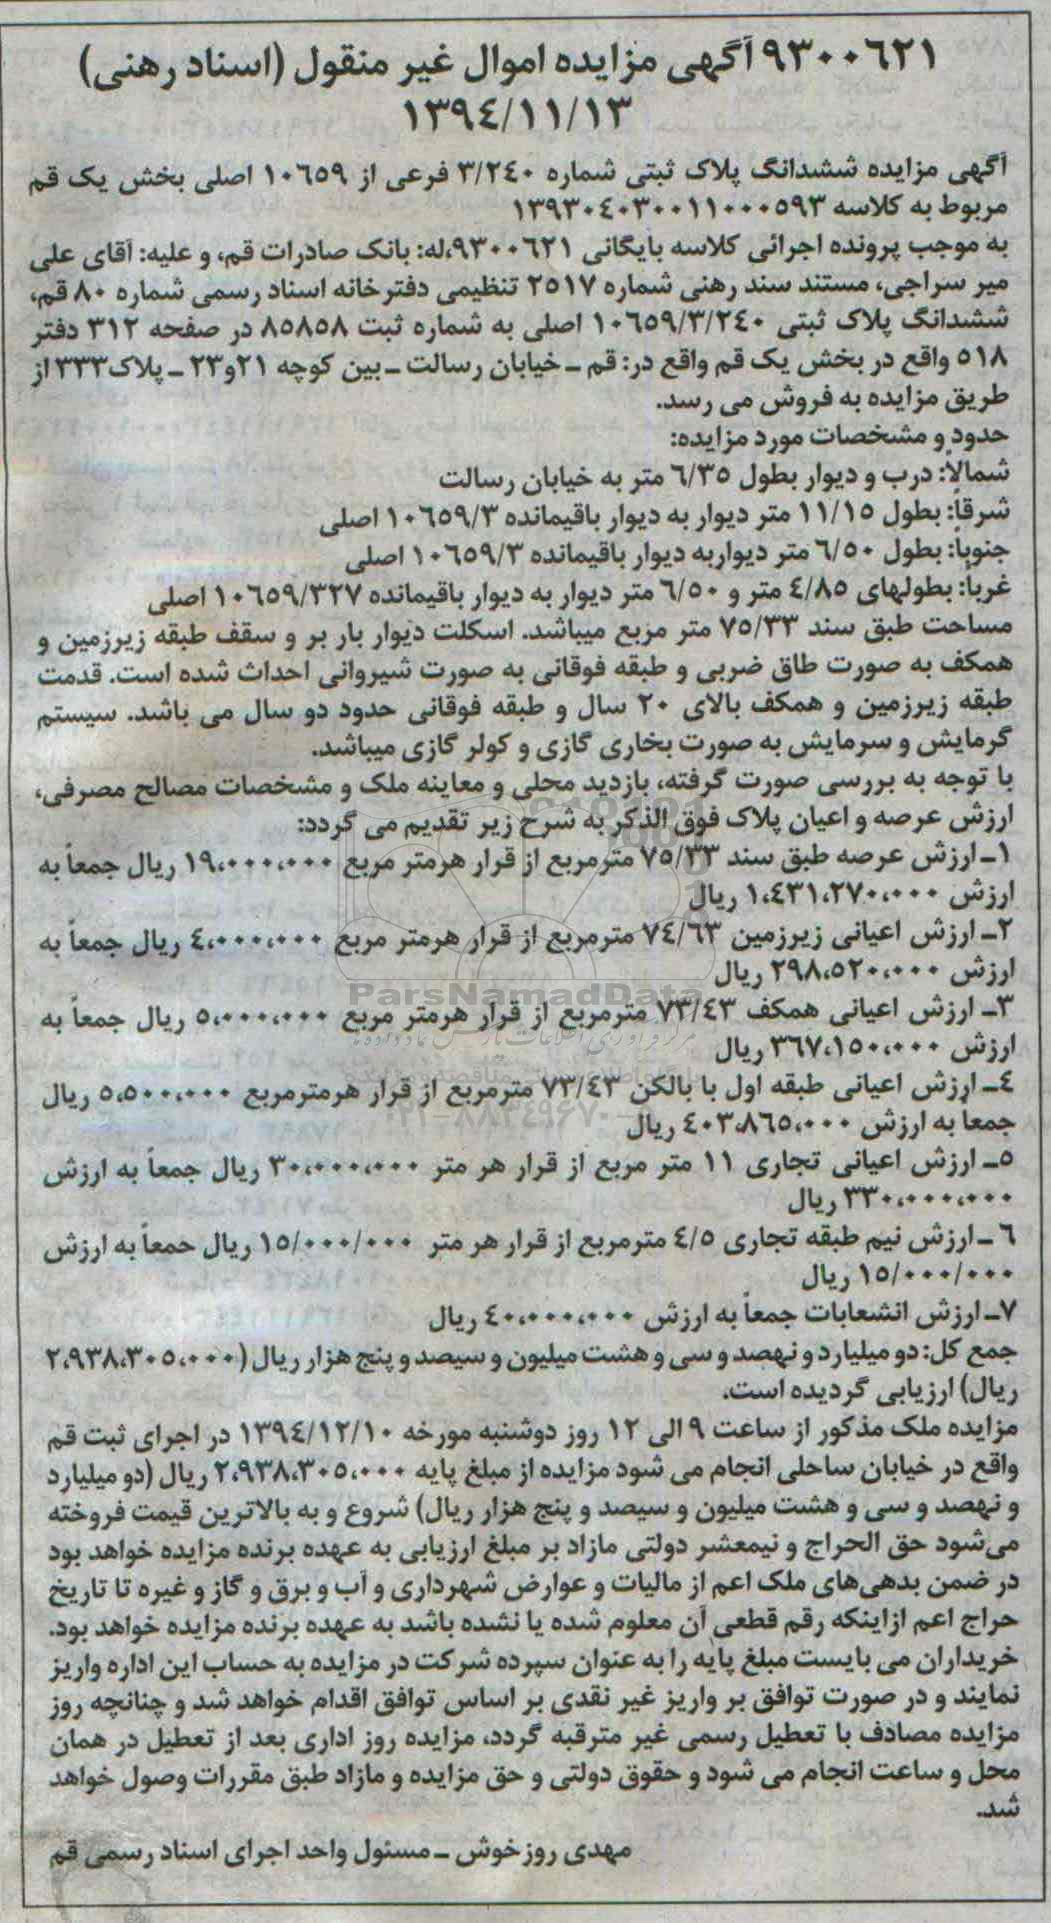 ۹۳۰۰٦۲۱ آگهی مزایده اموال غیر منقول (اسناد رهنی)
۱۳۹٤/۱۱/۱۳
آگهی مزایده ششدانگ پلاک ثبتی شماره ۳/۲٤۰ فرعی از ۱۰٦٥۹ اصلی بخش یک قم
مربوط به کلاسه ۱۳۹۳۰٤۰۳۰۰۱۱۰۰۰٥۹۳
به موجب پرونده اجرائی کلاسه بایگانی ۹۳۰۰٦۲۱،له: بانک صادرات قم، و علیه: آقای علی
میر سراجی، مستند سند رهنی شماره ۲٥۱۷ تنظیمی دفترخانه اسناد رسمی شماره ۸۰ قم،
ششدانگ پلاک ثبتی ۱۰٦٥۹/۳/۲٤۰ اصلی به شماره ثبت ۸٥۸٥۸ در صفحه ۳۱۲ دفتر
٥۱۸ واقع در بخش یک قم واقع در: قم ـ خیابان رسالت ـ بین کوچه ۲۱و۲۳ ـ پلاک۳۳۳ از
طریق مزایده به فروش می رسد.
حدود و مشخصات مورد مزایده:
شمالاً: درب و دیوار بطول ٦/۳٥ متر به خیابان رسالت
شرقاً: بطول ۱۱/۱٥ متر دیوار به دیوار باقیمانده ۱۰٦٥۹/۳ اصلی
جنوباً: بطول ٦/٥۰ متر دیواربه دیوار باقیمانده ۱۰٦٥۹/۳ اصلی
غرباً: بطولهای ٤/۸٥ متر و ٦/٥۰ متر دیوار به دیوار باقیمانده ۱۰٦٥۹/۳۲۷ اصلی
مساحت طبق سند ۷٥/۳۳ متر مربع میباشد. اسکلت دیوار بار بر و سقف طبقه زیرزمین و
همکف به صورت طاق ضربی و طبقه فوقانی به صورت شیروانی احداث شده است. قدمت
طبقه زیرزمین و همکف بالای ۲۰ سال و طبقه فوقانی حدود دو سال می باشد. سیستم
گرمایش و سرمایش به صورت بخاری گازی و کولر گازی میباشد.
با توجه به بررسی صورت گرفته، بازدید محلی و معاینه ملک و مشخصات مصالح مصرفی،
ارزش عرصه و اعیان پلاک فوق الذکر به شرح زیر تقدیم می گردد:
۱ـ ارزش عرصه طبق سند ۷٥/۳۳ مترمربع از قرار هرمتر مربع ۱۹،۰۰۰،۰۰۰ ریال جمعاً به
ارزش ۱،٤۳۱،۲۷۰،۰۰۰ ریال
۲ـ ارزش اعیانی زیرزمین ۷٤/٦۳ مترمربع از قرار هرمتر مربع ٤،۰۰۰،۰۰۰ ریال جمعاً به
ارزش ۲۹۸،٥۲۰،۰۰۰ ریال
۳ـ ارزش اعیانی همکف ۷۳/٤۳ مترمربع از قرار هرمتر مربع ٥،۰۰۰،۰۰۰ ریال جمعاً به
ParsNamadData
ارزش ۳٦۷،۱٥۰،۰۰۰ ریال
٤ـ ارزش اعیانی طبقه اول با بالکن ۷۳/٤۳ مترمربع از قرار هرمترمربع ٥،٥۰۰،۰۰۰ ریال
جمعاً به ارزش ٤۰۳،۸٦٥،۰۰۰ ریال
٥ـ ارزش اعیانی تجاری ۱۱ متر مربع از قرار هر متر ۳۰،۰۰۰،۰۰۰ ریال جمعاً به ارزش
۳۳۰،۰۰۰،۰۰۰ ریال
٦ ـ ارزش نیم طبقه تجاری ٤/٥ مترمربع از قرار هر متر ۱٥/۰۰۰/۰۰۰ ریال جمعاً به ارزش
۱٥/۰۰۰/۰۰۰ ریال
۷ـ ارزش انشعابات جمعاً به ارزش ٤۰،۰۰۰،۰۰۰ ریال
جمع کل: دو میلیارد و نهصد و سی و هشت میلیون و سیصد و پنج هزار ریال (۲،۹۳۸،۳۰٥،۰۰۰
ریال) ارزیابی گردیده است.
مزایده ملک مذکور از ساعت ۹ الی ۱۲ روز دوشنبه مورخه ۱۳۹٤/۱۲/۱۰ در اجرای ثبت قم
واقع در خیابان ساحلی انجام می شود مزایده از مبلغ پایه ۲،۹۳۸،۳۰٥،۰۰۰ ریال (دو میلیارد
و نهصد و سی و هشت میلیون و سیصد و پنج هزار ریال) شروع و به بالاترین قیمت فروخته
می‌شود حق الحراج و نیمعشر دولتی مازاد بر مبلغ ارزیابی به عهده برنده مزایده خواهد بود
در ضمن بدهی‌های ملک اعم از مالیات و عوارض شهرداری و آب و برق و گاز و غیره تا تاریخ
حراج اعم ازاینکه رقم قطعی آن معلوم شده یا نشده باشد به عهده برنده مزایده خواهد بود.
خریداران می بایست مبلغ پایه را به عنوان سپرده شرکت در مزایده به حساب این اداره واریز
نمایند و در صورت توافق بر واریز غیر نقدی بر اساس توافق اقدام خواهد شد و چنانچه روز
مزایده مصادف با تعطیل رسمی غیر مترقبه گردد، مزایده روز اداری بعد از تعطیل در همان
محل و ساعت انجام می شود و حقوق دولتی و حق مزایده و مازاد طبق مقررات وصول خواهد
شد.
مهدی روزخوش ـ مسئول واحد اجرای اسناد رسمی قم